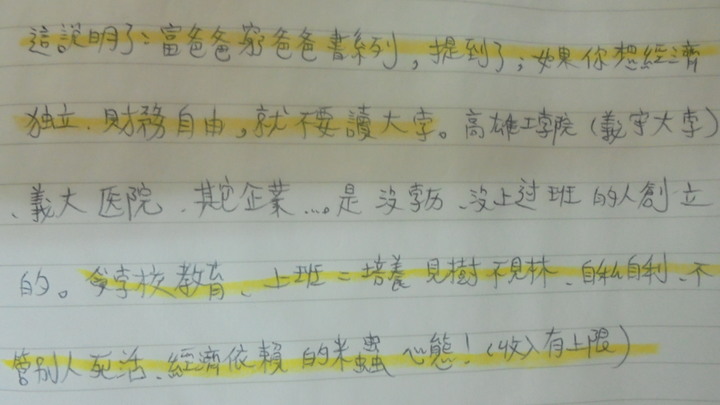 這說明了:富爸爸窮爸爸書系列,提到了;如果你想經濟
独立、財務自由,就不要讀大学。高雄工学院(義守大学)
、義大医院、其它企業...。是沒学历、沒上过班的人創立
的。学校教育、上班=培養見樹不見林、自私自利、不
管別人死活、經濟依賴的米蟲心態!(收入有上限)